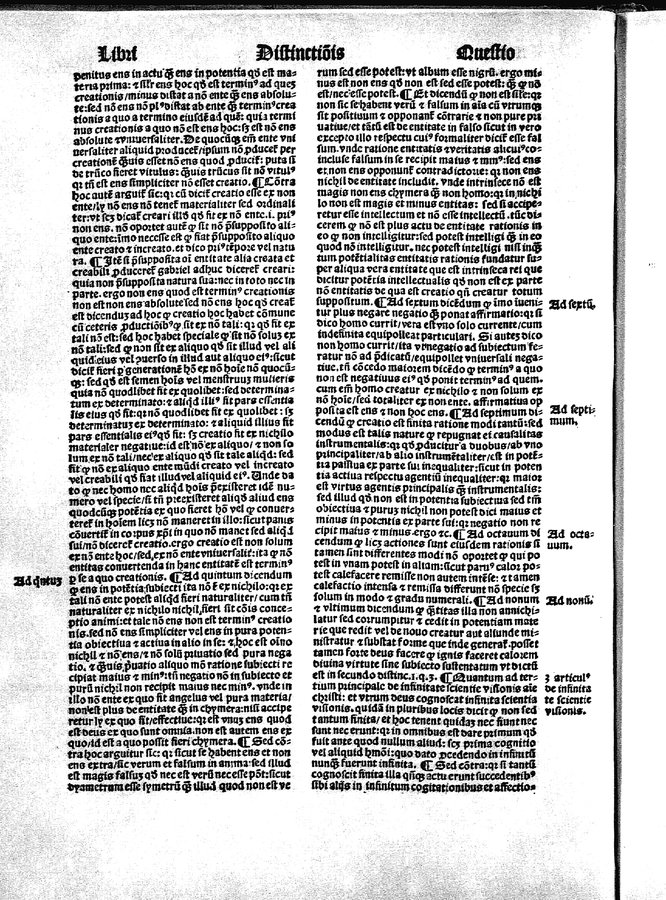 Libri Distinctiõis Questio
penitus ens in actu ꝙ̃ ens in potentia qď est ma-
teria prima: ⁊ sil'r ens hoc qď est termin⁹ ad quẽ
creationis/minus distat a nõ ente ꝙ̃ ens absolu-
te:sed nõ ens nõ pl⁹ distat ab ente ꝙ̃ termin⁹ crea
tionis a quo a termino eiusdẽ ad quẽ: qui a termi
nus creationis a quo nõ est ens hoc: sꝫ est nõ ens
absolute ⁊ vniuersaliter. De quocũqꝫ em̃ ente vni
uersaliter aliquid producet̃/ipsum nõ ꝓducit̃ per
creationẽ ꝙ̃uis esset nõ ens quod ꝓducit̃: puta si
de trũco fieret vitulus: ꝙ̃uis trũcus sit nõ vitul⁹
qꝛ tñ est ens simpliciter nõ esset creatio. ¶ Cõtra
hoc autẽ arguit̃ sic: qꝛ cũ dicit̃ creatio esse ex non
ente/ly nõ ens nõ tenet̃ materialiter sed ordinali
ter: vt sꝫ dicat̃ creari illď qď fit ex nõ ente. i. pri⁹
non ens. nõ oportet autẽ ꝙ sit nõ p̃supposito ali-
quo ente: imo necesse est ꝙ fiat p̃supposito aliquo
ente creato ⁊ increato. et dico pri⁹ tẽpore vel natu
ra. ¶ Itẽ si p̃supposita oĩ entitate alia creata et
creabili ꝓduceret̃ gabriel adhuc diceret̃ creari:
quia non p̃supposita natura sua: nec in toto nec in
parte. ergo non ens quod est termin⁹ creationis
non est non ens absolute sed nõ ens hoc qď creat̃
est dicendũ
tali nõ est: sed hoc habet speciale ꝙ sit nõ solũ ex
nõ tali: sed ꝙ non sit ex aliquo qď sit illud vel ali
quid eius vel ꝓuerso in illud aut aliquo ei⁹: sicut
dicit̃ fieri ꝑ generationẽ hõ ex nõ hoĩe nõ quocũ-
qꝫ: sed qď est semen hoĩs vel menstruũ mulieris
quia nõ quodlibet fit ex quolibet: sed determina-
tum ex determinato: ⁊ aliqď illi⁹ fit pars essentia
lis eius qď fit: qꝛ nõ quodlibet fit ex quolibet: sꝫ
determinatũ ex determinato: ⁊ aliquid illius fit
pars essentialis ei⁹ qď fit: sꝫ creatio fit ex nichilo
materialet̃ negatiue: id est nõ ex aliquo/ ⁊ non so
lum ex nõ tali/nec ex aliquo qď sit tale aliqď: sed
fit ꝙ nõ ex aliquo ente mũdi creato vel increato
vel creabili qď fiat illud vel aliquid ei⁹. Unde da
to ꝙ nec homo nec aliqď hoĩs p̃existeret idẽ nu-
mero vel specie/ si tñ p̃existeret aliqď aliud ens
quodcũqꝫ potẽtia ex quo fieret hõ vel ꝙ conuer-
teret̃ in hoĩem licꝫ nõ maneret in illo: sicut panis
cõuertit̃ in corpus xp̃i in quo manet sed aliqď
sui/nõ diceret̃ creatio. ergo creatio est non solum
ex nõ ente hoc/sed ex nõ ente vniuersalit̃: ita ꝙ nõ
entitas conuertenda in hanc entitatẽ est termin⁹
ꝑ se a quo creationis. ¶ Ad quintum dicendum
ꝙ ens in potẽtia subiecti ita nõ ẽ ex nichilo: qꝛ ex
tali nõ ente potest aliqď fieri naturaliter/cum tñ
naturaliter ex nichilo nichil fieri sit cõis conce-
ptio animi: et tale nõ ens non est termin⁹ creatio
nis. sed nõ ens simpliciter vel ens in pura poten-
tia obiectiua ⁊ actiua in alio in se: ⁊ hoc est oĩno
nichil ⁊ nõ ens/ ⁊ nõ solũ priuatio sed pura nega
tio. ⁊ ꝙ̃uis p̃uatio aliquo mõ ratione subiecti re
cipiat maius ⁊ min⁹: tñ negatio nõ in subiecto et
purũ nichil non recipit maius nec min⁹. vnde in
illo nõ ente ex quo fit angelus vel pura materia/
non est plus de entitate ꝙ̃ in chymera: nisi accipe
retur ly ex quo fit/effectiue: qꝛ est vnũ ens quod
est deus ex quo sunt omnia. non est autem ens ex
quo/id est a quo possit fieri chymera. ¶ Sed cõ-
tra hoc arguitur sic: qꝛ sicut se habent ens et non
ens extra/sic verum et falsum in anima: sed illud
est magis falsuꝫ qď nec est verũ nec esse põt: sicut
dyametrum esse symetrũ ꝙ̃ illud quod non est ve
Ad q̃ntũꝫ
rum sed esse potest: vt album esse nigrũ. ergo mi-
nus est non ens qď non est sed esse potest: ꝙ̃ ꝙ nõ
est/nec esse potest. ¶ Et dicendũ ꝙ non est sil'e: qꝛ
non sic se habent verũ ⁊ falsum in aĩa cũ vtrumqꝫ
sit positiuum ⁊ opponant̃ cõtrarie ⁊ non pure pri
uatiue/et tãtũ est de entitate in falso sicut in vero
excepto illo respectu cui⁹ formaliter dicit̃ esse fal
sum. vnde ratione entitatis ⁊ veritatis alicui⁹ co-
incluse falsum in se recipit maius ⁊ min⁹: sed ens
et non ens opponunt̃ contradictorie: qꝛ non ens
nichil de entitate includit. vnde intrinsece nõ est
magis non ens chymera ꝙ̃ non homo: qꝛ in nichi
lo non est magis et minus entitas: sed si accipe-
retur esse intellectum et nõ esse intellectũ. tũc di-
cerem ꝙ nõ est plus actu de entitate rationis in
eo ꝙ non intelligitur: sed potest intelligi ꝙ̃ in eo
quod nõ intelligitur, nec potest intelligi nisi inqũ
tum potẽtialitas entitatis rationis fundatur su-
per aliqua vera entitate que est intrinseca rei que
dicitur potẽtia intellectualis qď non est ex parte
nõ entitatis de qua est creatio qñ creatur totum
suppositum. ¶ Ad sextum dicẽdum ꝙ imo inueni-
tur plus negare negatio ꝙ̃ ponat affirmatio: qꝛ si
dico homo currit/ vera est vno solo currente/cum
indefinita equipolleat particulari. Si autẽ dico
non homo currit/ista ⁊ negatio ad subiectum fe-
ratur nõ ad p̃dicatũ/equipollet vniuersali nega-
tiue. tñ cõcedo maiorem dicẽdo ꝙ termin⁹ a quo
non est negatiuus ei⁹ qď ponit termin⁹ ad quem.
cum em̃ homo creatur ex nichilo ⁊ non solum ex
nõ hoĩe/ sed totaliter ex non ente. affirmatiua op
posita est ens ⁊ non hoc ens. ¶ Ad septimum di-
cendũ ꝙ creatio est finita ratione modi tantũ: sed
modus est talis nature ꝙ repugnat ei causalitas
instrumentalis: qꝛ qď ꝓducitur a duobus/ab vno
principaliter/ab alio instrumẽtaliter/est in potẽ-
tia passiua ex parte sui: inequaliter: sicut in poten
tia actiua respectu agentiũ inequaliter: qꝛ maior
est virtus agentis principalis ꝙ̃ instrumentalis:
sed illud qď non est in potentia subiectiua sed tm̃
obiectiua ⁊ puruꝫ nichil non potest dici maius et
minus in potentia ex parte sui: qꝛ negatio non re
cipit maius ⁊ minus. ergo ⁊c. ¶ Ad octauum di
cendum ꝙ licꝫ actiones sunt eiusdem rationis si
tamen sint differentes modi nõ oportet ꝙ qui po
test in vnam potest in aliam: sicut paru⁹ calor po-
test calefacere remisse non autem intẽse: ⁊ tamen
calefactio intensa ⁊ remissa differunt nõ specie sꝫ
solum in modo ⁊ gradu numerali. ¶ Ad nonum
⁊ vltimum dicendum ꝙ q̃titas illa non annichi-
latur sed corrumpitur ⁊ cedit in potentiam mate
rie que redit vel de nouo creatur aut aliunde mi-
nistratur ⁊ substat forme que inde generat̃. posset
tamen forte deus facere ꝙ ignis faceret calorem
diuina virtute sine subiecto sustentatum vt dictũ
est in secundo distinc.1.q.3. ¶ Quantum ad ter-
tium principale de infinitate scientie visionis aĩe
christi: et vtrum deus cognoscat infinita scientia
visionis. quidã in pluribus locis dicit ꝙ non sed
tantum finita/et hoc tenent quidaꝫ nec fiunt nec
sunt nec erunt: qꝛ in omnibus est dare primum qď
fuit ante quod nullum aliud: scꝫ prima cognitio
vel aliquid hmõi: quo dato ꝓcedendo in infinitũ
nunꝙ̃ fuerunt infinita. ¶ Sed cõtra: qꝛ si tantũ
cognoscit finita illa qñqꝫ actu erunt succedentib⁹
sibi aliq̃s in infinitum cogitationibus et affectio-
Ad sextũ.
Ad septi-
mum.
Ad octa-
uum.
Ad nonũ.
3 articul⁹
de infinita
te scientie
visionis.